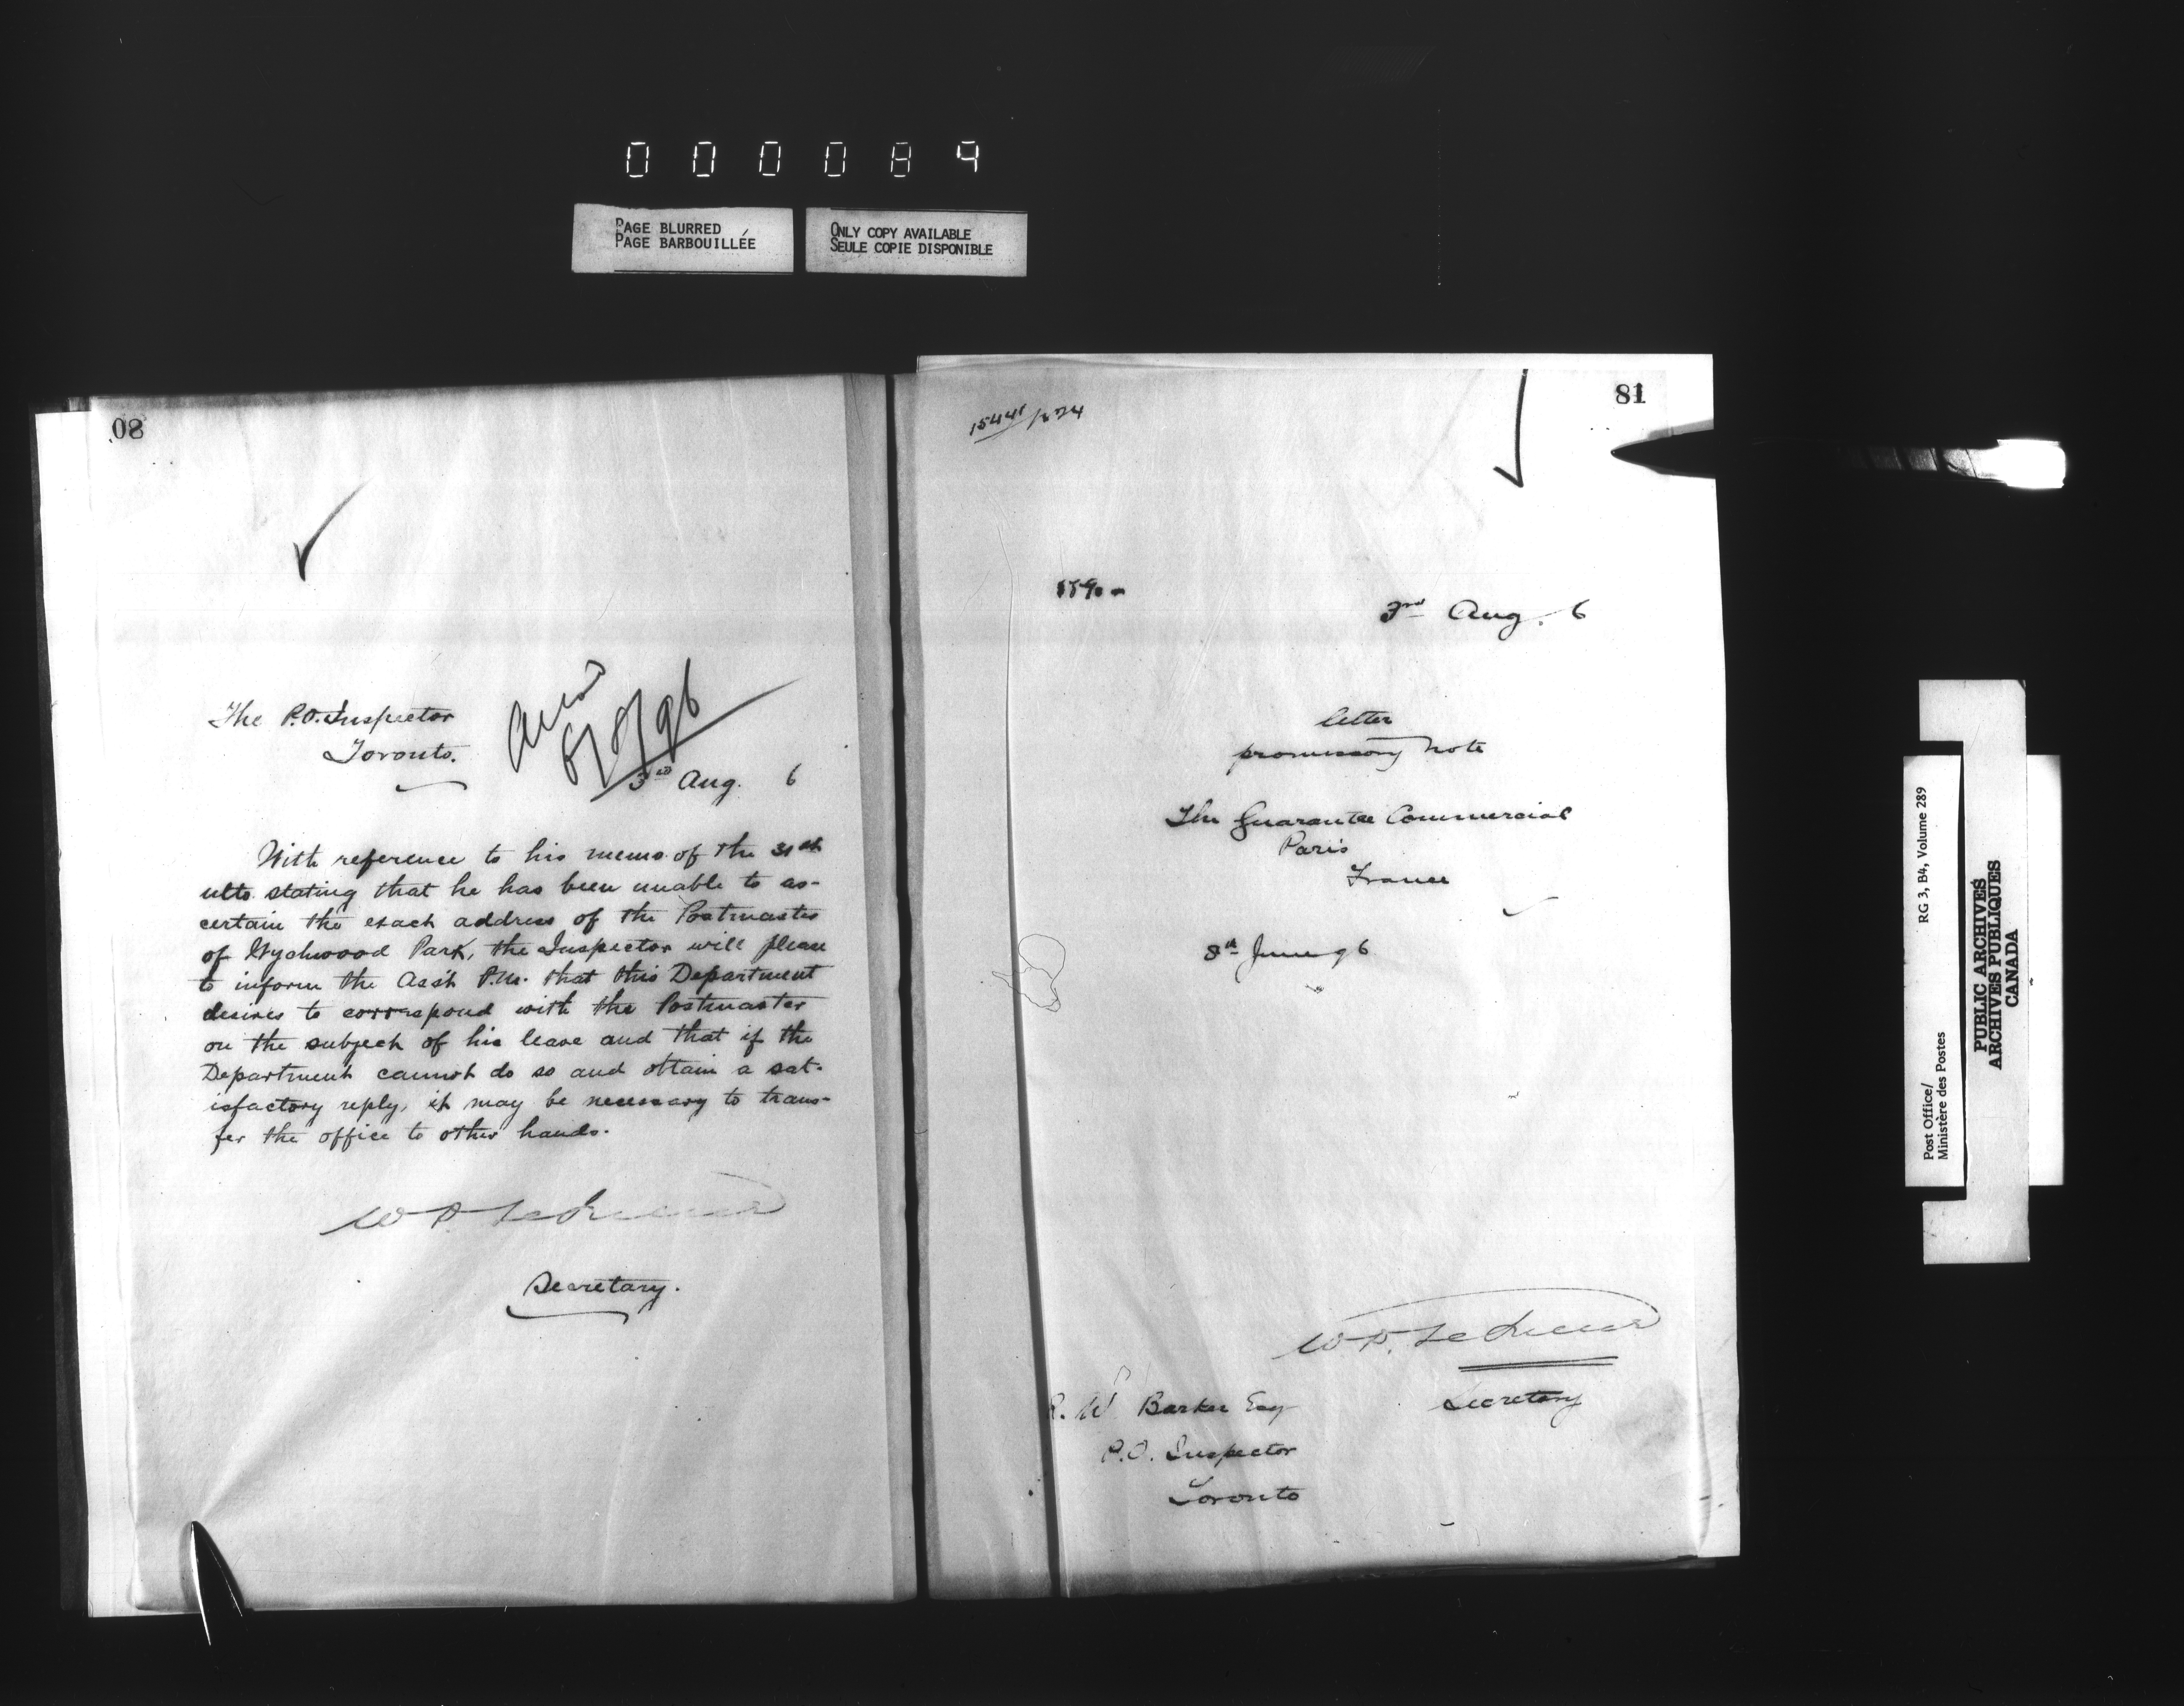 000089
PAGE BLURRED
PAGE BARBOUILLÉE
ONLY COPY AVAILABLE
SEULE COPIE DISPONIBLE
80
The P.O. Inspector
Toronto.
8/8/96
3rd Aug. 6
With reference to his memo. of the 31st
ulto. stating that he has been unable to as-
certain the exact address of the Postmaster
of Wychwood Park, the Inspector will please
to inform the Asst. P.M. that this Department
desires to correspond with the Postmaster
on the subject of his leave and that if the
Department cannot do so and obtain a sat-
isfactory reply, it may be necessary to trans-
fer the office to other hands.
Secretary.
81
3rd Aug. 6
letter
promissory note
The Guarantee Commercial
Paris
France
8th June 96
Secretary
R. W Barker Esq
P.O. Inspector
Toronto
Post Office/
Ministère des Postes
RG 3, B4, Volume 289
PUBLIC ARCHIVES
ARCHIVES PUBLIQUES
CANADA